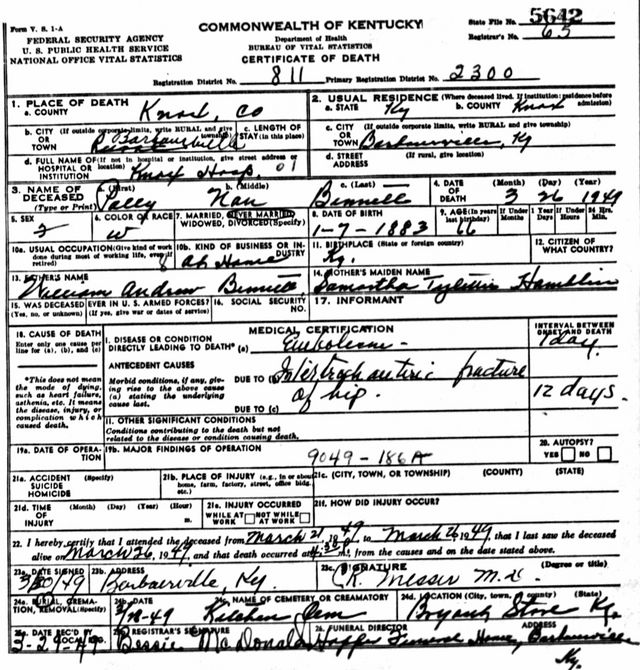 Form V. S. 1-A
COMMONWEALTH OF KENTUCKY
State File No. 5642
FEDERAL SECURITY AGENCY
Department of Health
Registrar's No. 65
U. S. PUBLIC HEALTH SERVICE
BUREAU OF VITAL STATISTICS
NATIONAL OFFICE VITAL STATISTICS
CERTIFICATE OF DEATH
Registration District No. 811 Primary Registration District No. 2300
1. PLACE OF DEATH
a. COUNTY Knox, Co
2. USUAL RESIDENCE (Where deceased lived. If institution: residence before admission)
a. STATE Ky b. COUNTY Knox
b. CITY (If outside corporate limits, write RURAL and give township) OR TOWN Barbourville
c. LENGTH OF STAY (in this place)
c. CITY (If outside corporate limits, write RURAL and give township) OR TOWN Barbourville, Ky
d. FULL NAME OF (If not in hospital or institution, give street address or location) HOSPITAL OR INSTITUTION Knox Hosp. 01
d. STREET ADDRESS (If rural, give location)
3. NAME OF DECEASED (Type or Print)
a. (First) b. (Middle) Nan c. (Last)
4. DATE OF DEATH (Month) (Day) (Year) 3 26 1949
5. SEX F
6. COLOR OR RACE W
7. MARRIED, NEVER MARRIED, WIDOWED, DIVORCED (Specify)
8. DATE OF BIRTH 1-7-1883
9. AGE (In years last birthday) 66
If Under 1 Year Months Days
If Under 24 Hrs. Hours Min.
10a. USUAL OCCUPATION (Give kind of work done during most of working life, even if retired)
10b. KIND OF BUSINESS OR INDUSTRY At Home
11. BIRTHPLACE (State or foreign country) Ky.
12. CITIZEN OF WHAT COUNTRY?
13. FATHER'S NAME William Andrew
14. MOTHER'S MAIDEN NAME Samantha Hamblin
15. WAS DECEASED EVER IN U. S. ARMED FORCES? (Yes, no, or unknown) (If yes, give war or dates of service)
16. SOCIAL SECURITY NO.
17. INFORMANT
18. CAUSE OF DEATH
Enter only one cause per line for (a), (b), and (c)
MEDICAL CERTIFICATION
INTERVAL BETWEEN ONSET AND DEATH
I. DISEASE OR CONDITION DIRECTLY LEADING TO DEATH* (a) Embolism 1 day.
*This does not mean the mode of dying, such as heart failure, asthenia, etc. It means the disease, injury, or complication which caused death.
ANTECEDENT CAUSES
Morbid conditions, if any, giving rise to the above cause (a) stating the underlying cause last.
DUE TO (b) Intertrochanteric fracture of hip. 12 days.
DUE TO (c)
II. OTHER SIGNIFICANT CONDITIONS
Conditions contributing to the death but not related to the disease or condition causing death.
19a. DATE OF OPERATION
19b. MAJOR FINDINGS OF OPERATION
9049-186A
20. AUTOPSY? YES NO
21a. ACCIDENT SUICIDE HOMICIDE (Specify)
21b. PLACE OF INJURY (e.g., in or about home, farm, factory, street, office bldg. etc.)
21c. (CITY, TOWN, OR TOWNSHIP) (COUNTY) (STATE)
21d. TIME OF INJURY (Month) (Day) (Year) (Hour) m.
21e. INJURY OCCURRED WHILE AT WORK NOT WHILE AT WORK
21f. HOW DID INJURY OCCUR?
22. I hereby certify that I attended the deceased from March 21, 1949 to March 26, 1949, that I last saw the deceased
alive on March 26, 1949, and that death occurred at m., from the causes and on the date stated above.
23a. DATE SIGNED 3/30/49
23b. ADDRESS Barbourville, Ky.
23c. SIGNATURE (Degree or title) Messer M.D.
24a. BURIAL, CREMATION, REMOVAL (Specify)
24b. DATE
24c. NAME OF CEMETERY OR CREAMATORY Kitchen Cem
24d. LOCATION (City, town, county) (State) Bryants Store Ky.
25a. DATE REC'D BY LOCAL REG. 3-29-49
25b. REGISTRAR'S SIGNATURE Bessie McDonald
26. FUNERAL DIRECTOR ADDRESS Hopper Funeral Home, Barbourville
Ky.